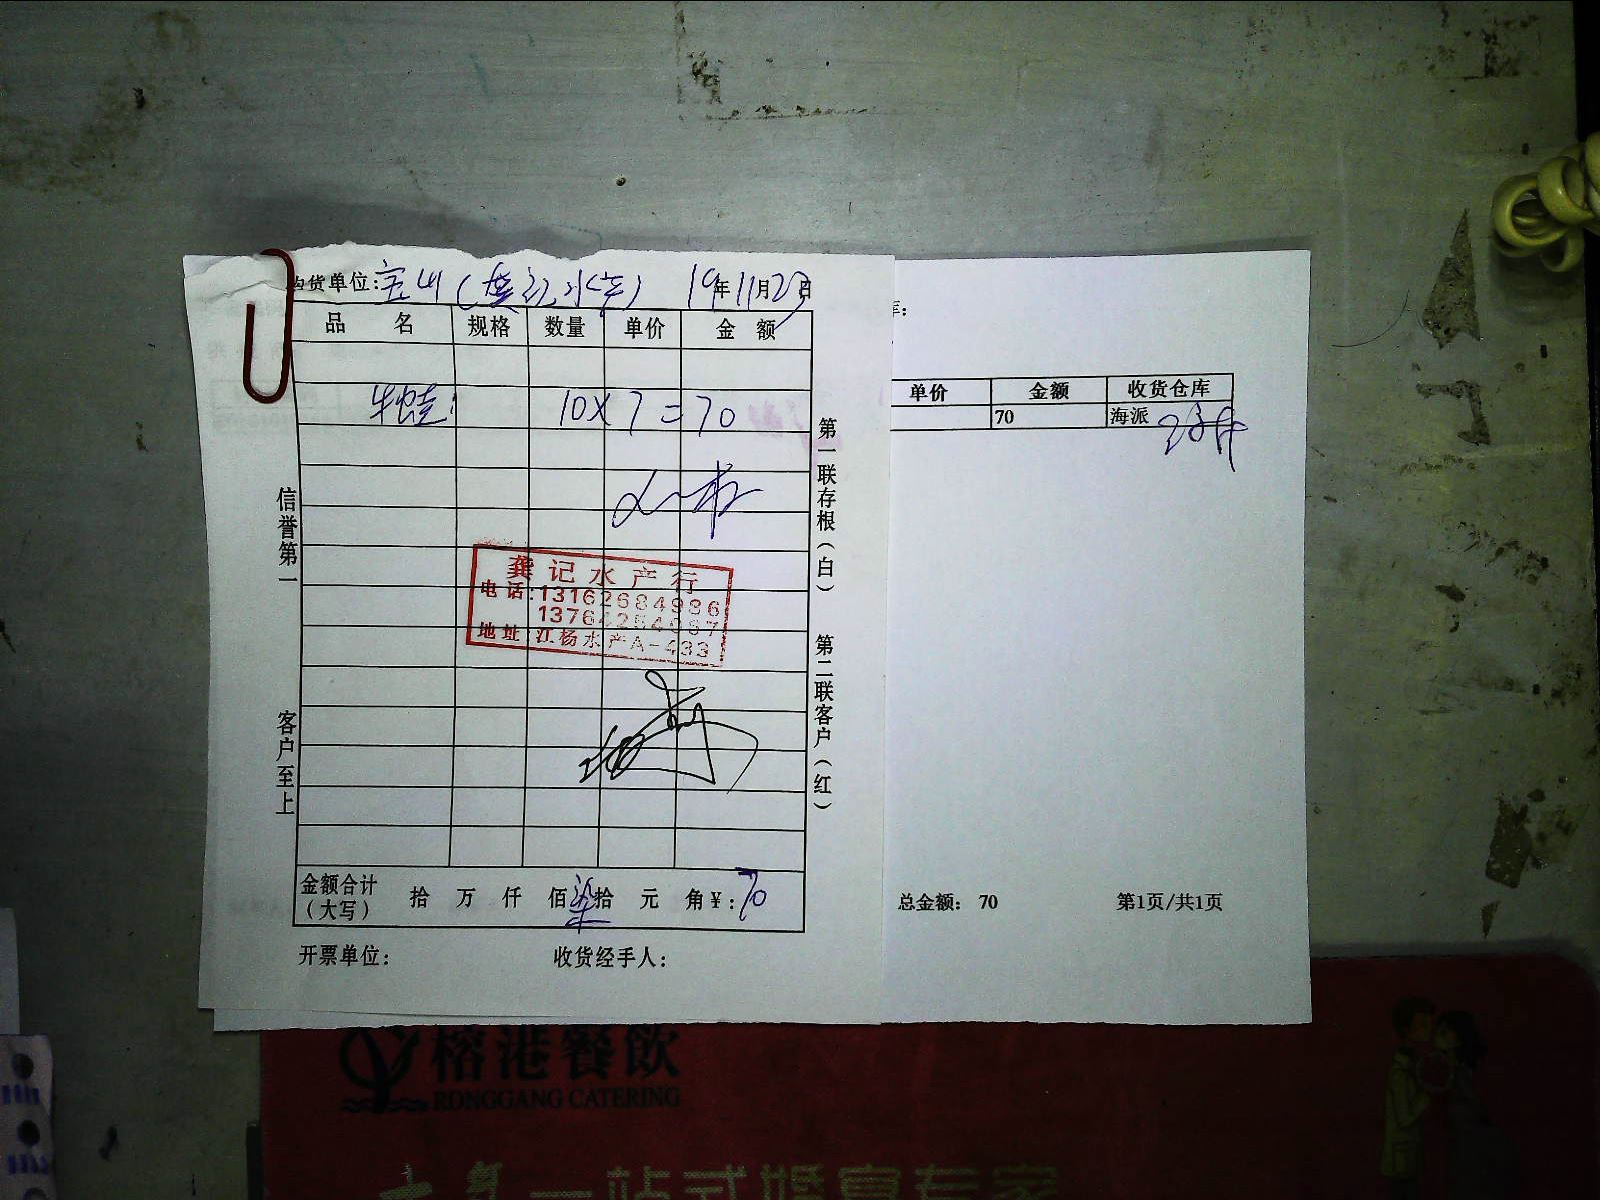 购货单位:宝山(龚记水产) 19年11月23日
品 名 规格 数量 单价 金额
牛蛙: 10×7=70
龚记水产行
电话:13162684986
地址:江杨水产A-433
金额合计(大写) 拾 万 仟 佰柒拾 元 角¥:70
开票单位: 收货经手人:
信誉第一
客户至上
第一联存根(白)
第二联客户(红)
库:
单价 金额 收货仓库
70 海派
总金额: 70 第1页/共1页
榕港餐飲
RONGGANG CATERING
一站式婚宴专家